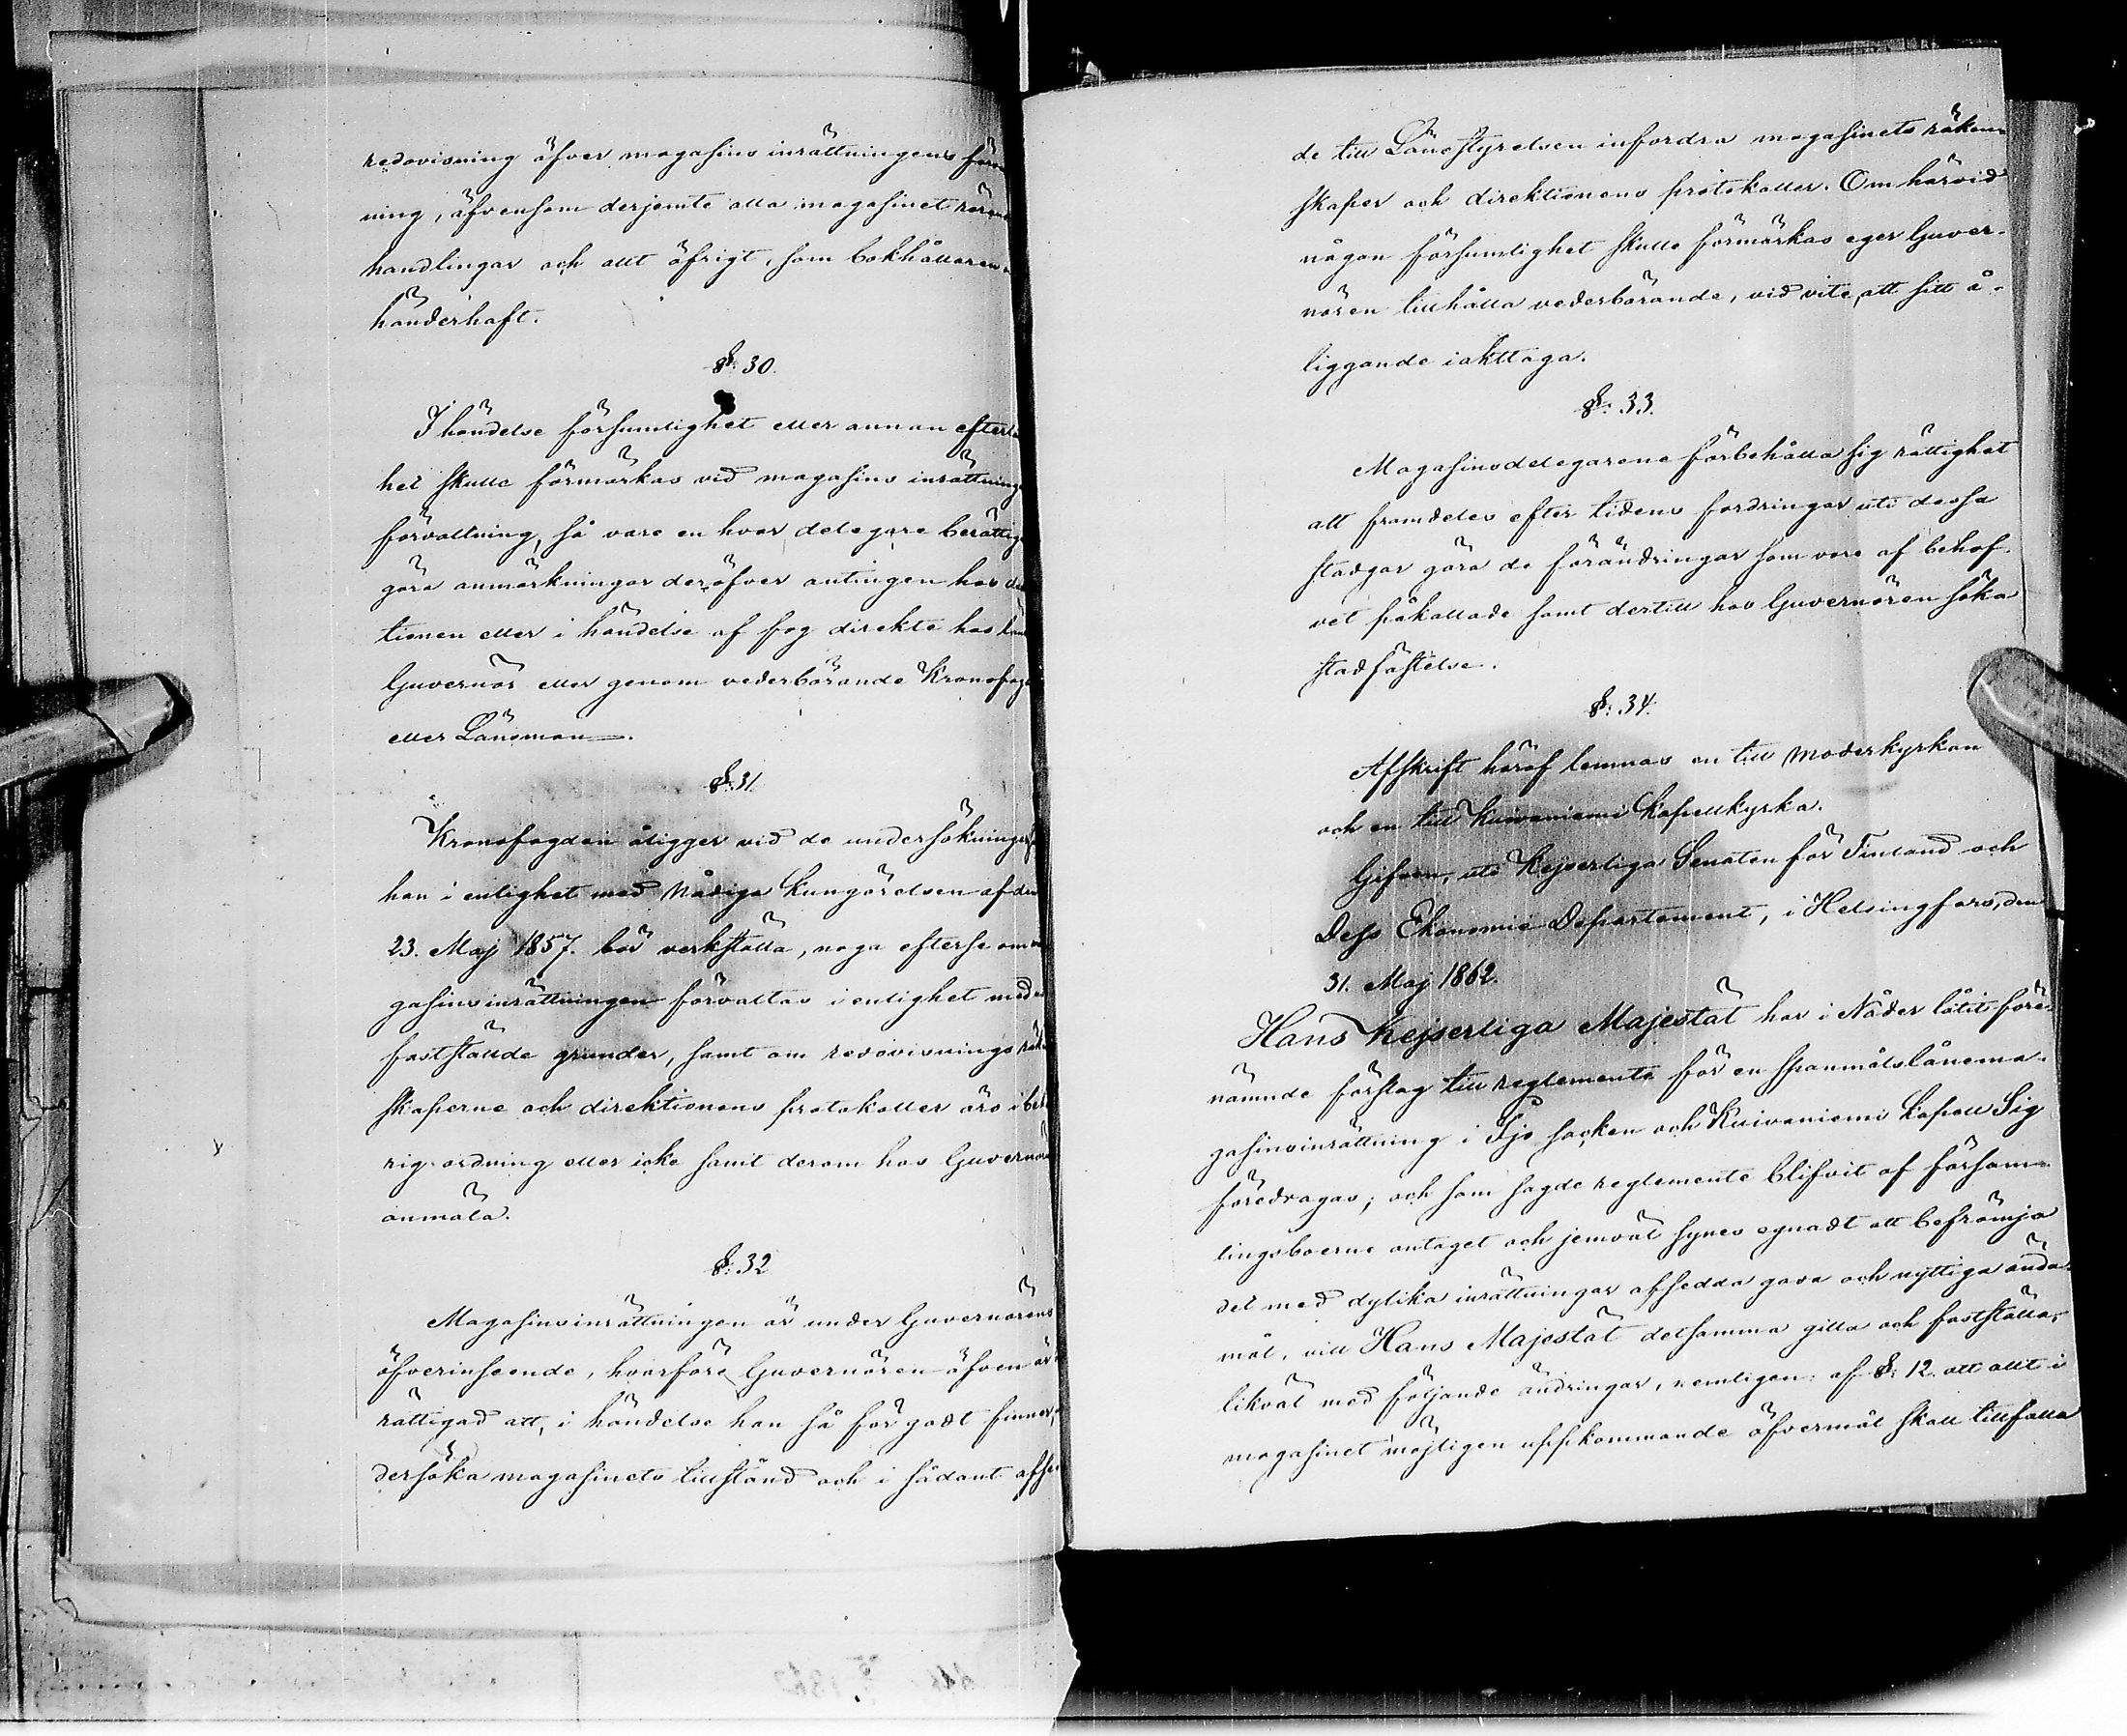 redovisning öfver magasins inrättningens förva
ning, äfvensom derjemte alla magasinet röran
handlingar och allt öfrigt, som bokhållaren
händerhaft.
§: 30.
I händelse försumlighet eller annan efterlå
het skulle förmärkas vid magasins inrättning
förvaltning, så vare en hvar delegare berättig
göra anmärkningar deröfver antingen hos di
tionen eller i händelse af fog direkte hos
Guvernör eller genom vederbörande Kronofog
eller Länsman.
§: 31
Kronofogden åligger vid de undersökningar
han i enlighet med Nådiga Kungörelsen af den
23. Maj 1857. bör verkställa, noga efterse om
gasinsinrättningen förvaltas i enlighet med
fastställde grunder, samt om redovisnings räk
skaperne och direktionens protokoller äro i beh
rig ordning eller icke samt derom hos Guvernör
anmäla.
§: 32
Magasinsinrättningen är under Guvernörens
öfverinseende, hvarföre Guvernören äfven är
rättigad att, i händelse han så för godt finner,
dersöka magasinets tillstånd och i sådant afse
de till Länestyrelsen infordra magasinets räken-
skaper och direktionens protokoller. Om härvid
någon försumlighet skulle förmärkas eger Guver-
nören tillhålla vederbörande, vid vite, att sitt å-
liggande iakttaga.
§: 33.
Magasinsdelegarene förbehålla sig rättighet
att framdeles efter tidens fordringar uti dessa
stadgar göra de förändringar som vore af behof-
vet påkallade samt dertill hos Guvernören söka
stadfästelse.
§: 34.
Afskrift häraf lemnas en till Moderkyrkan
och en till Kuivaniemi Kapellkyrka.
Gifven, uti Kejserliga Senaten för Finland och
Dess Ekonomie Departement, i Helsingfors, den
31. Maj 1862.
Hans Kejserliga Majestät har i Nåder låtit före-
nämnde förslag till reglemente för en spanmålslånema-
gasinsinrättning i Ijo socken och Kuivaniemi kapell Sig
föredragas; och som sagde reglemente blifvit af försam-
lingsboerne antaget och jemväl synes egnadt att befrämja
det med dylika inrättningar afsedda goda och nyttiga ända-
mål, vill Hans Majestät detsamma gilla och fastställa,
likväl med följande ändringar, nemligen: af §: 12. att allt i
magasinet möjligen uppkommande öfvermål skall tillfalla